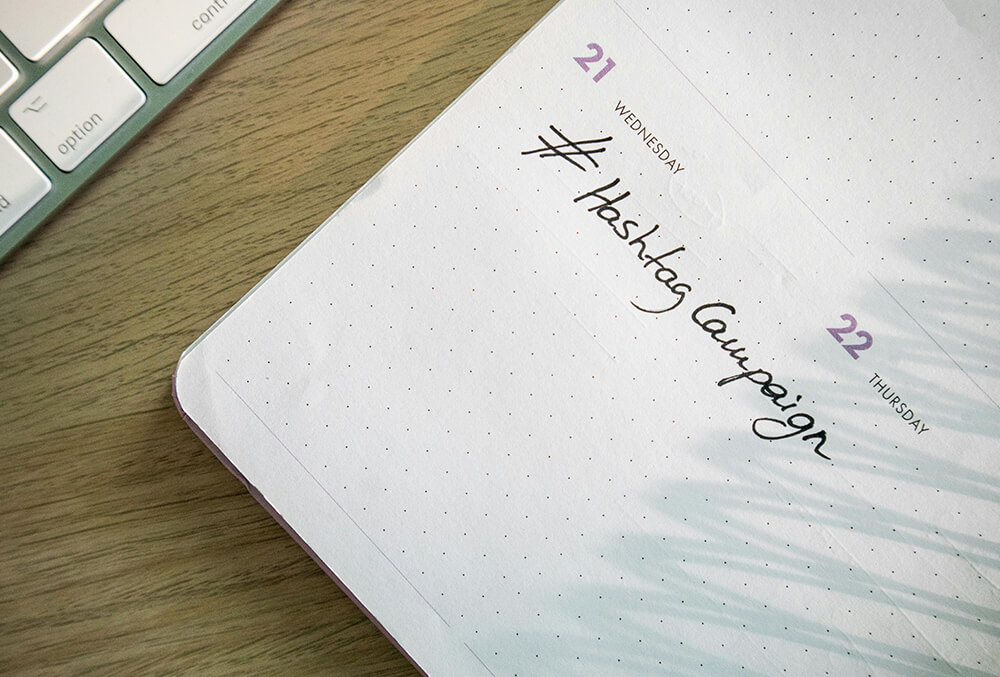 contr
option
d
21
WEDNESDAY
# Hashtag Campaign
22
THURSDAY